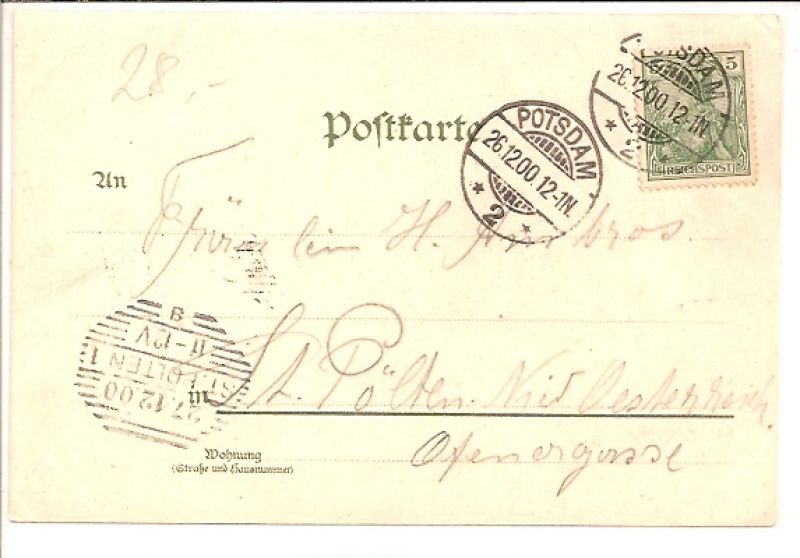 28.-
5
POTSDAM
26.12.00.12-1N.
* 2 *
REICHSPOST
Postkarte
POTSDAM
26.12.00.12-1N.
* 2 *
An
Fräulein H.
9
11-12V
ST. PÖLTEN 1
27.12.00
in St. Pölten Nied Oesterreich.
Wohnung
(Straße und Hausnummer)
Ofenergasse